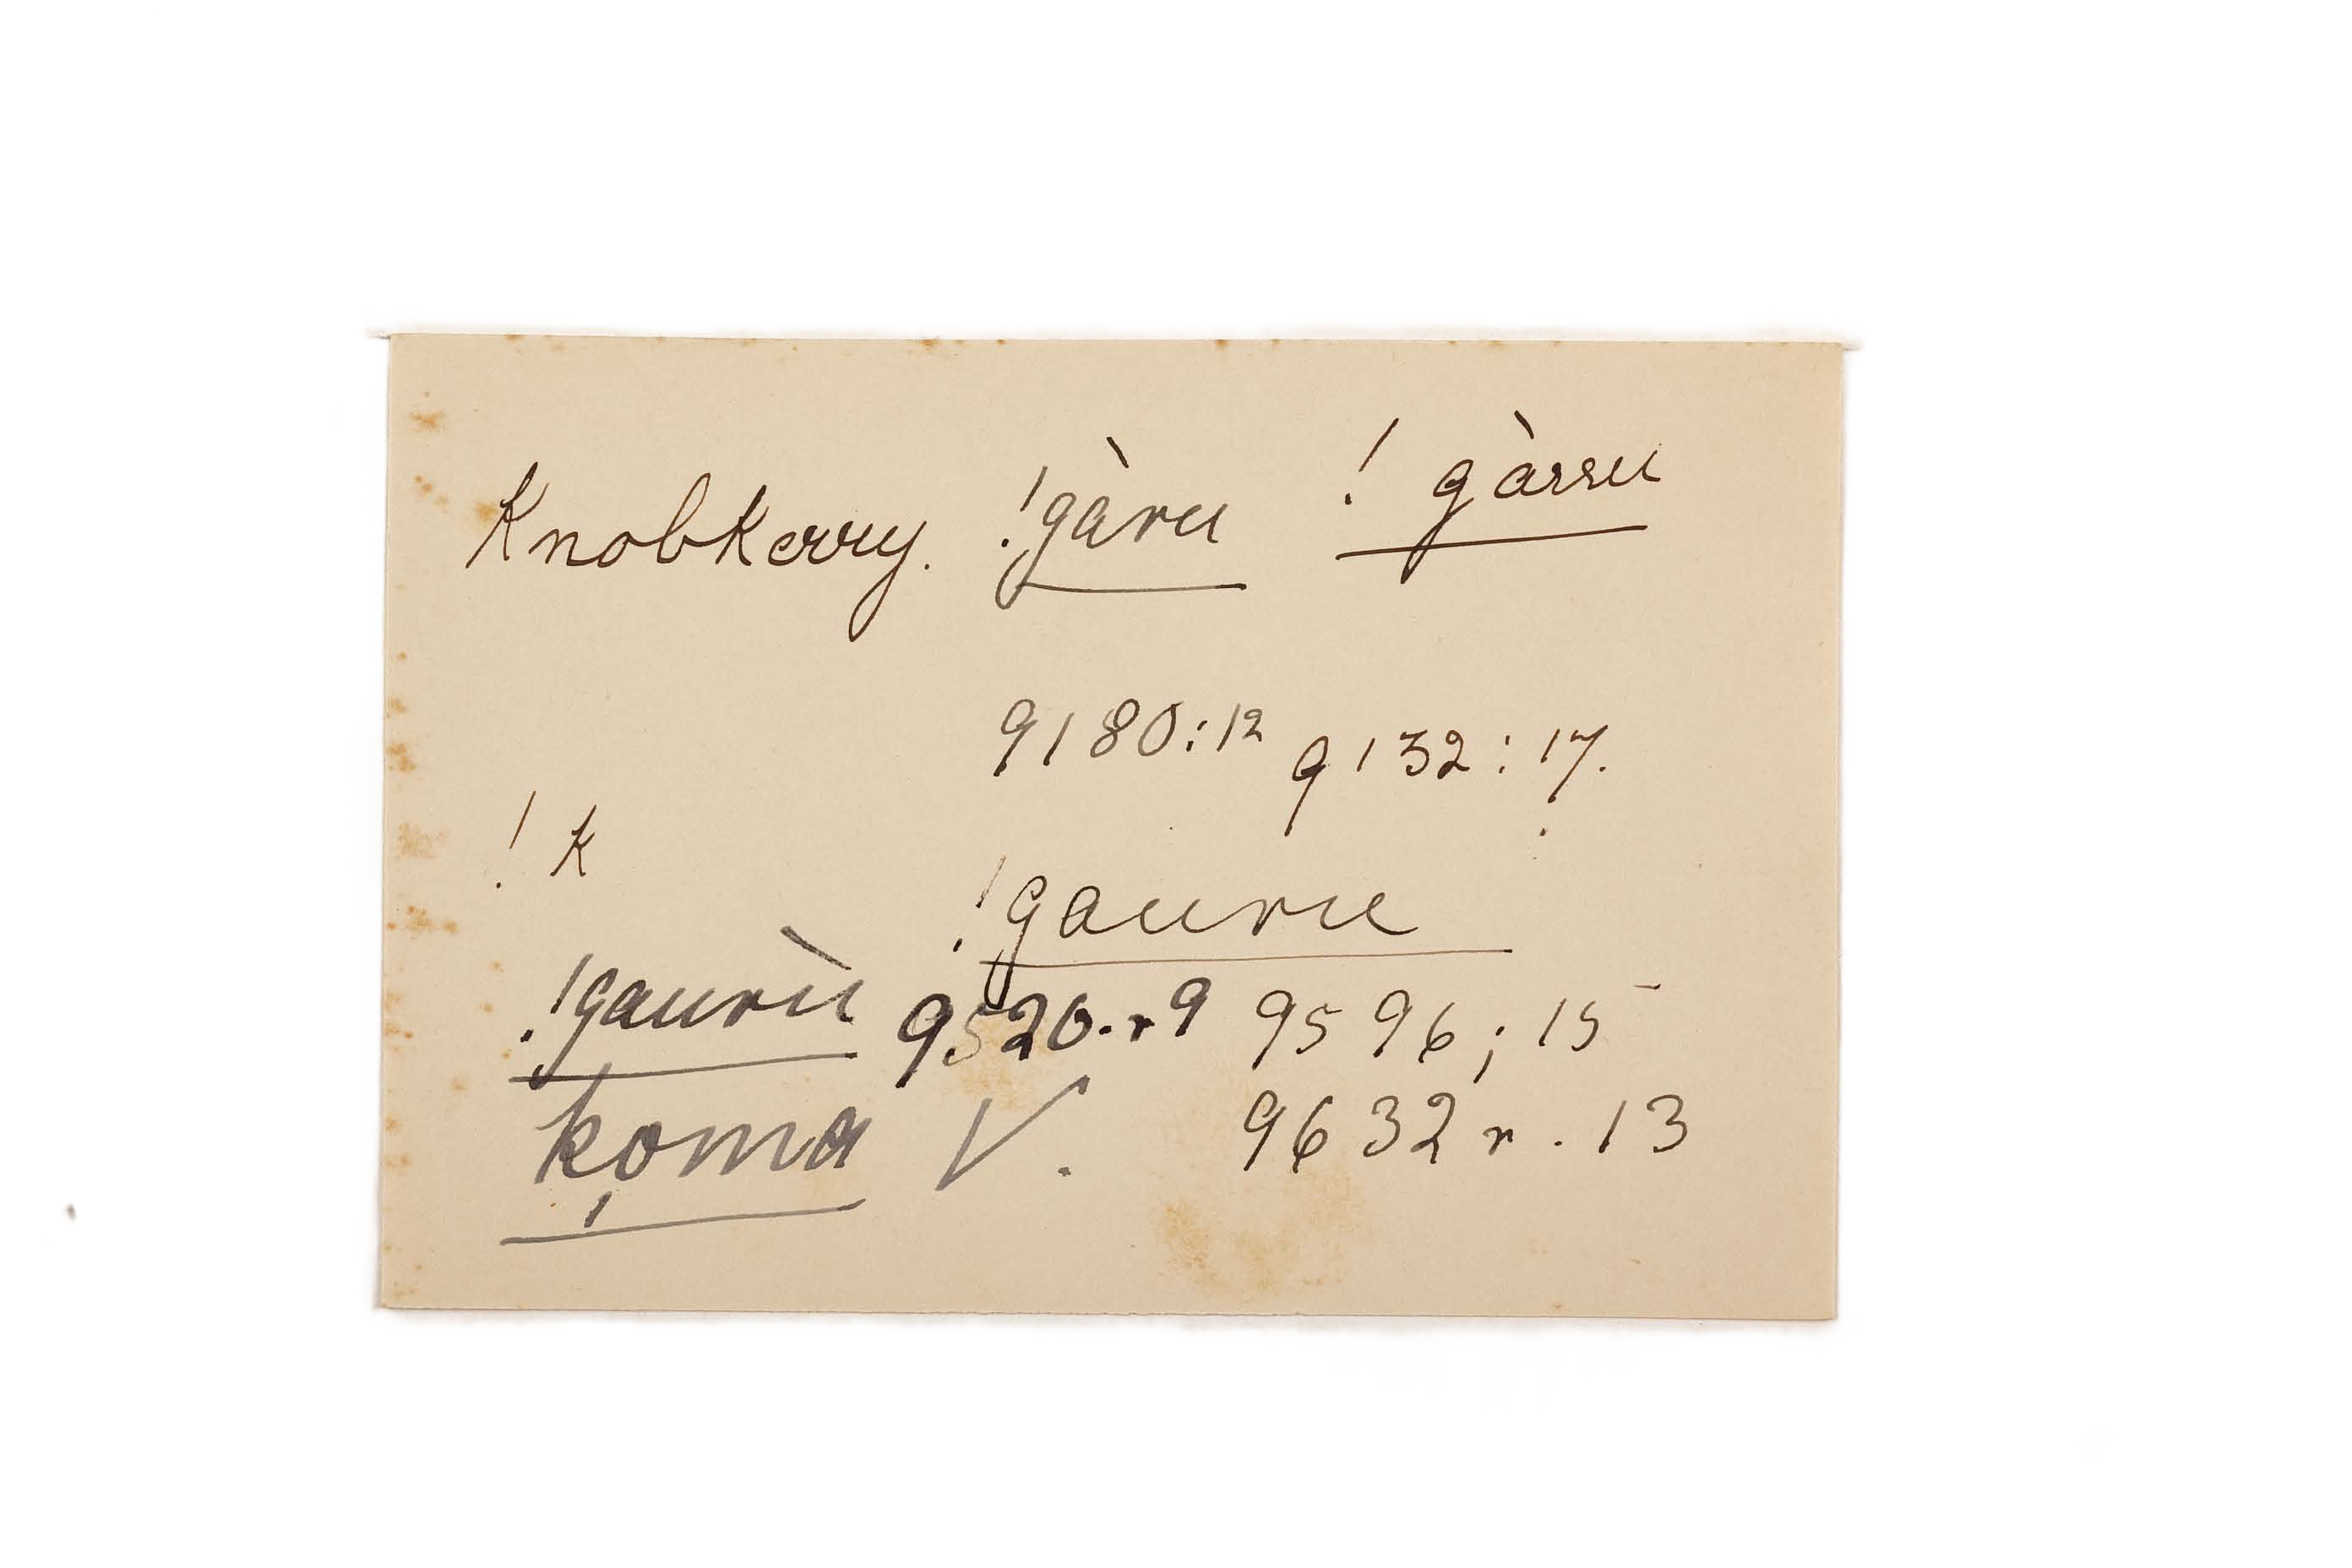 Knobkerry. !gàru ! gàrru
9180:12 9132:17.
! k
!gauru
!gaurù 9520.r9 9596; 15
ko̩ma V. 9632 r. 13